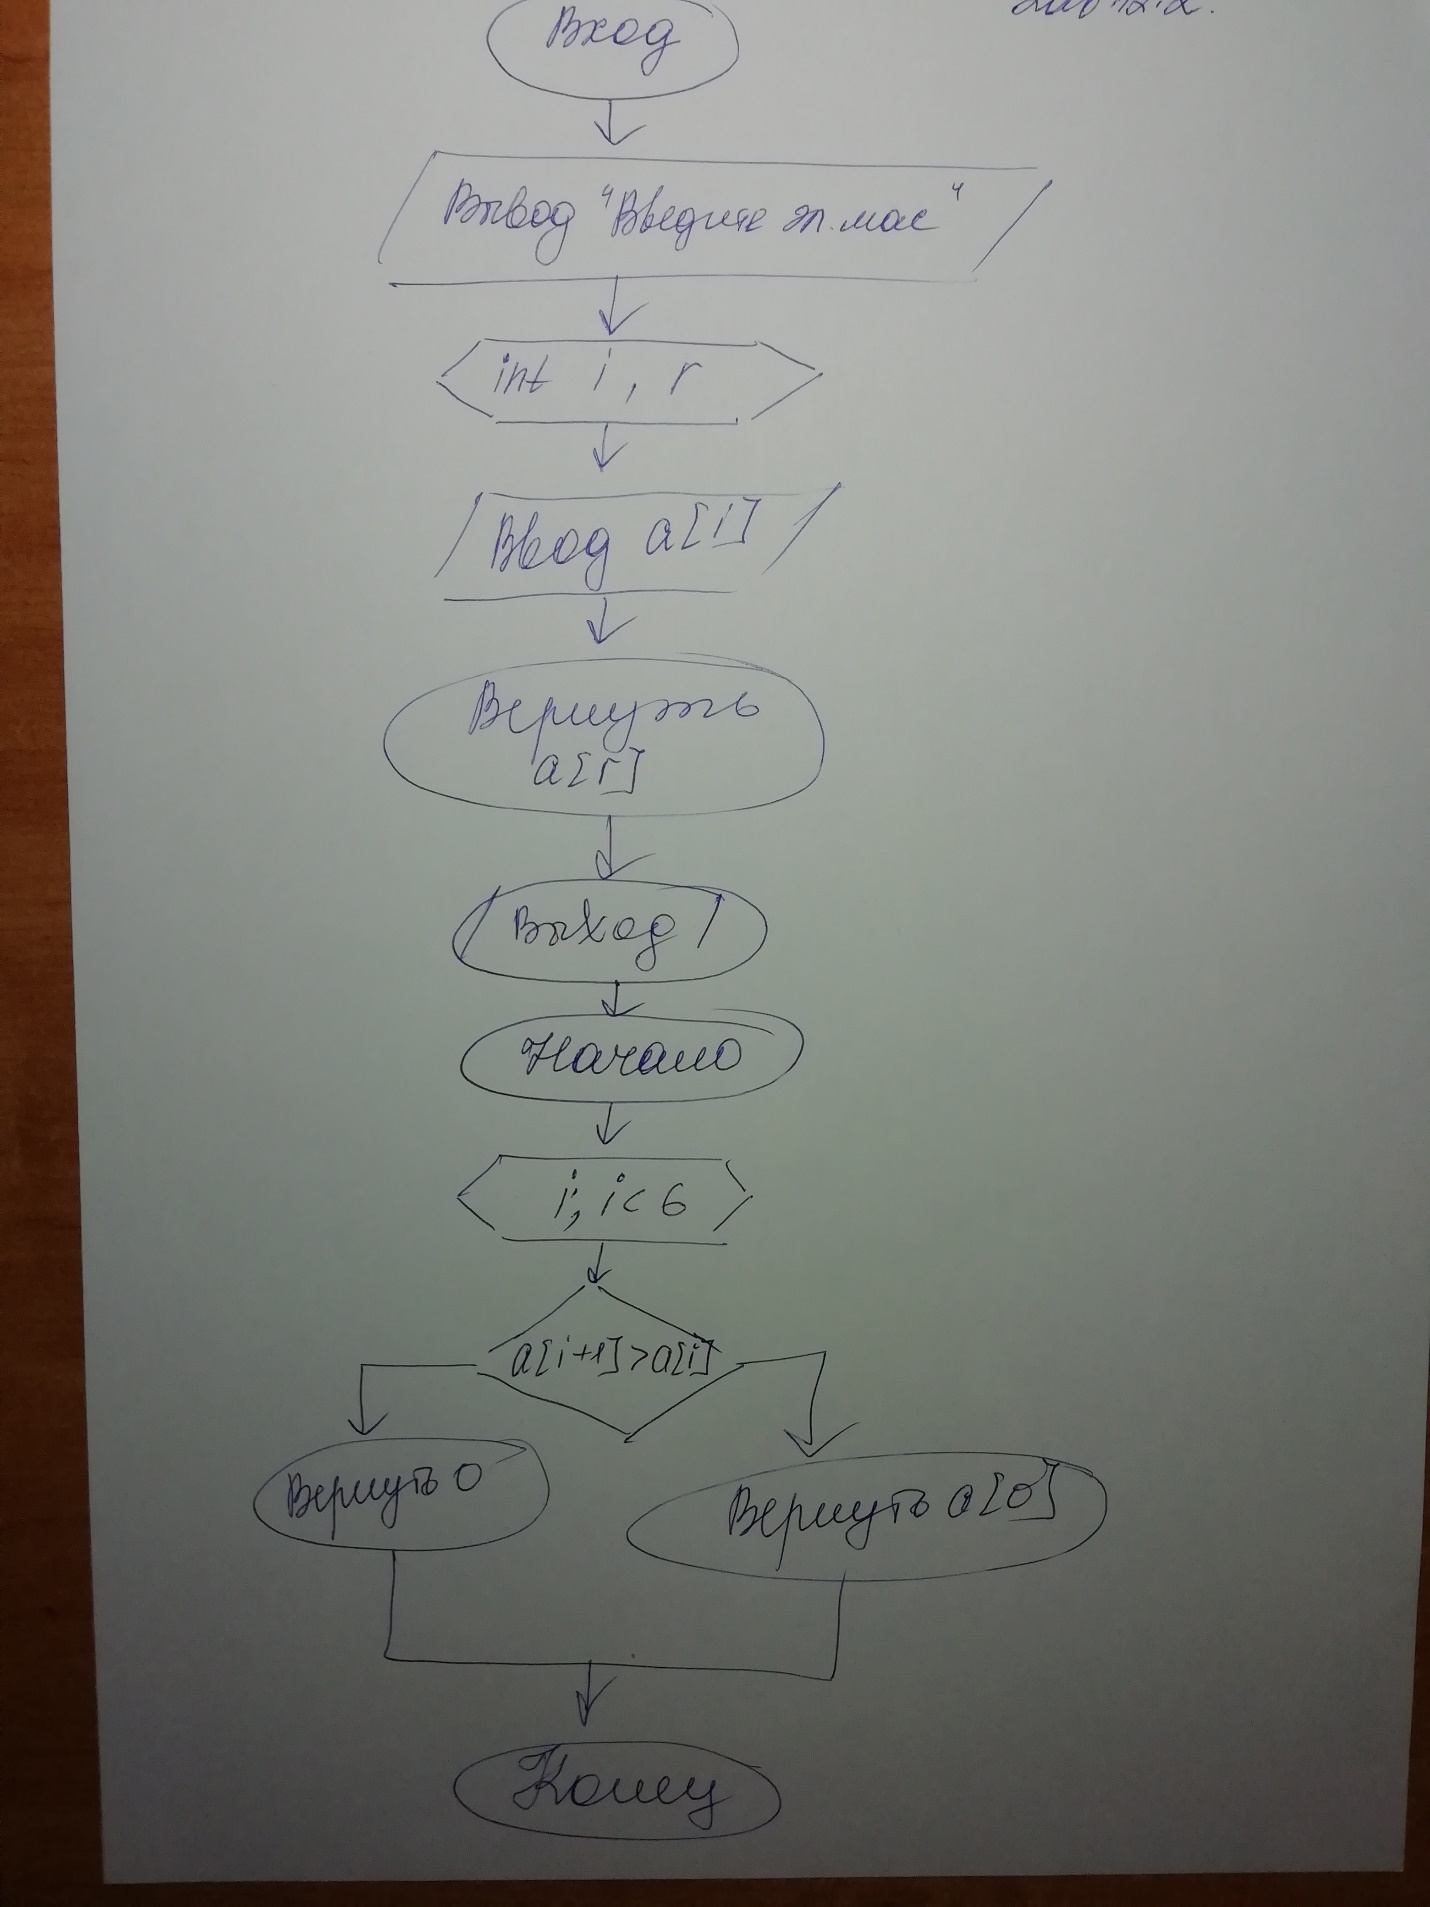 Вход
Вывод "Введите эл. мас"
int i, r
Ввод a[i]
Вернуть
a[r]
Выход
Начало
i; i<6
a[i+1]>a[i]
Вернуть 0
Вернуть a[0]
Конец